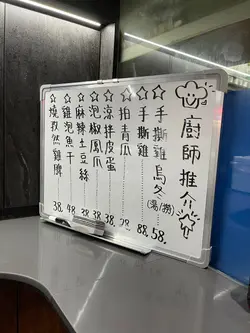 廚師推介
☆手撕雞烏冬(湯/撈) 58.
☆手撕雞 88.
☆拍青瓜
☆涼拌皮蛋 38.
☆泡椒鳳爪 38.
☆麻辣土豆絲 38.
☆雞泡魚干 48.
☆燒孜然雞髀 38.